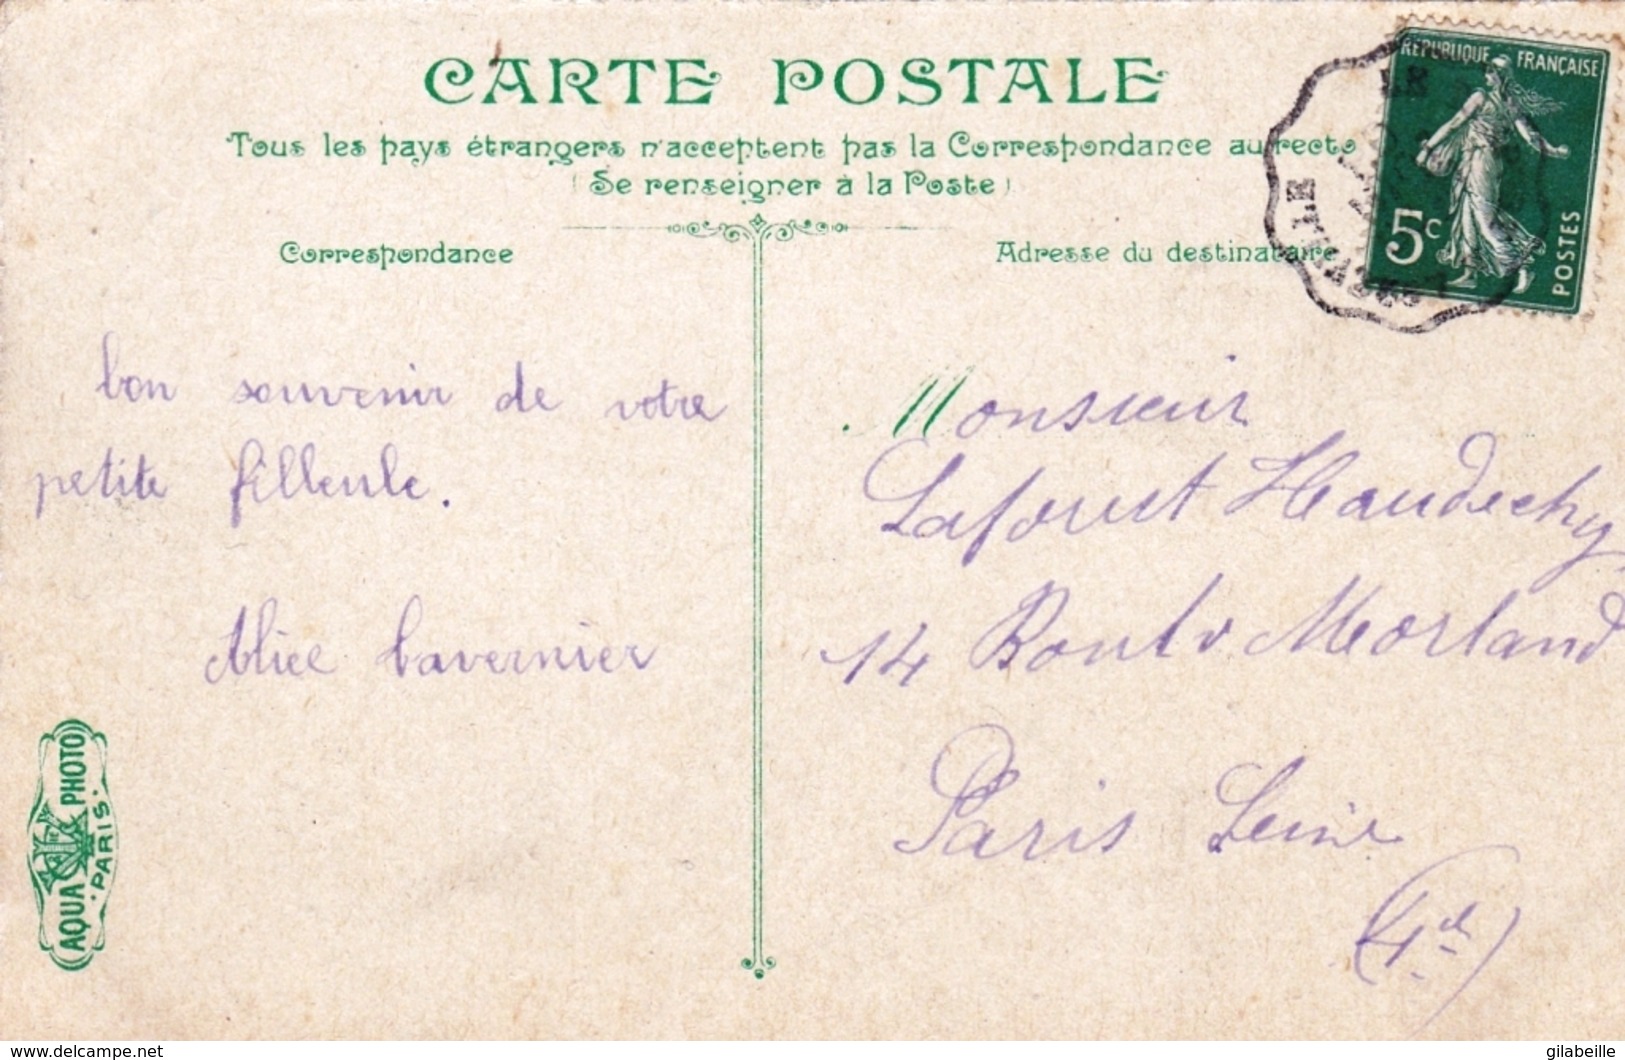 CARTE POSTALE
Tous les pays étrangers n'acceptent pas la Correspondance au recto
(Se renseigner à la Poste)
Correspondance
Adresse du destinataire
RÉPUBLIQUE FRANÇAISE
5c
POSTES
bon souvenir de votre
petite filleule.
Alice Lavernier
Monsieur
Laforest Haudechy
14 Boulv Morland
Paris Seine
(4d)
AQUA PHOTO
PARIS
delcampe.net
gilabeille